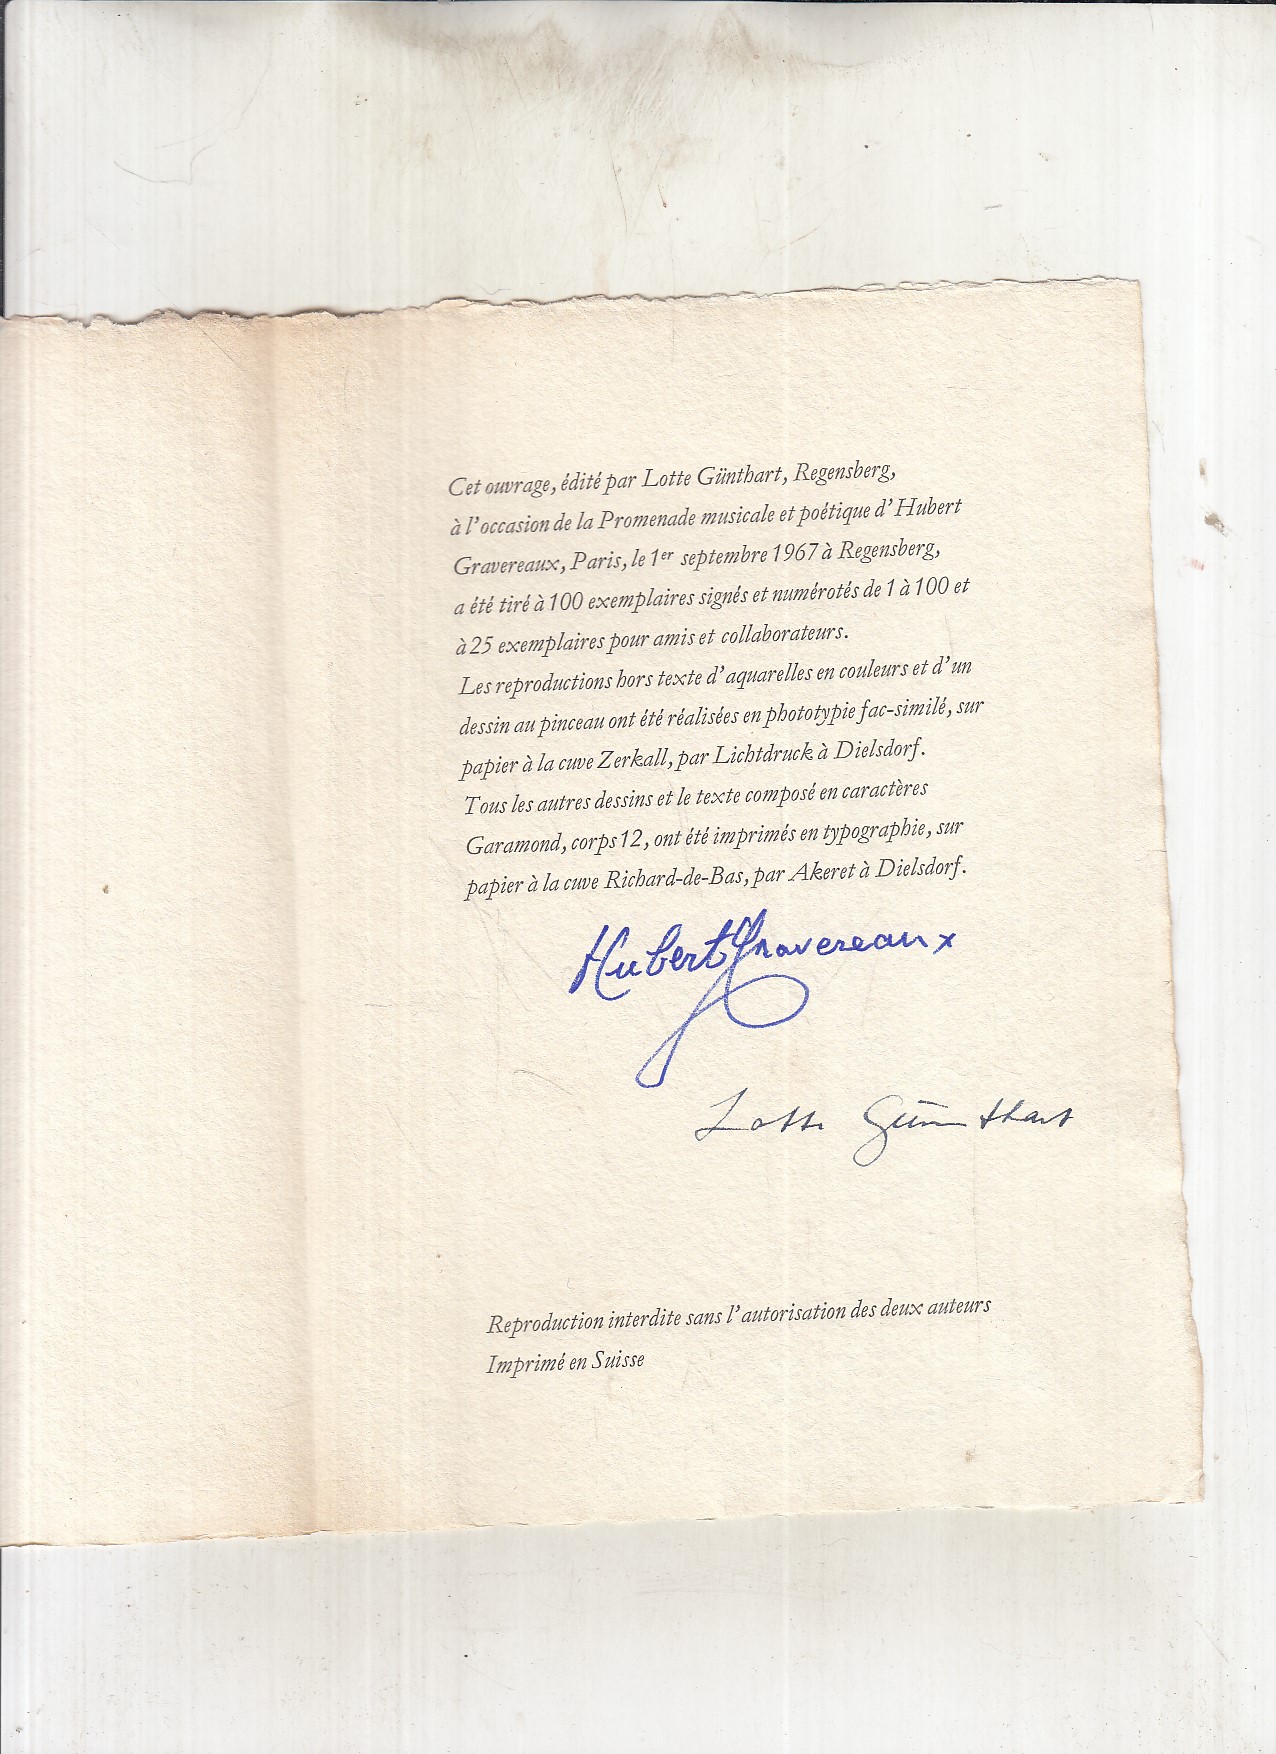 Cet ouvrage, édité par Lotte Günthart, Regensberg,
à l'occasion de la Promenade musicale et poétique d'Hubert
Gravereaux, Paris, le 1er septembre 1967 à Regensberg,
a été tiré à 100 exemplaires signés et numérotés de 1 à 100 et
à 25 exemplaires pour amis et collaborateurs.
Les reproductions hors texte d'aquarelles en couleurs et d'un
dessin au pinceau ont été réalisées en phototypie fac-similé, sur
papier à la cuve Zerkall, par Lichtdruck à Dielsdorf.
Tous les autres dessins et le texte composé en caractères
Garamond, corps 12, ont été imprimés en typographie, sur
papier à la cuve Richard-de-Bas, par Akeret à Dielsdorf.
Hubert Gravereaux
Lotte Günthart
Reproduction interdite sans l'autorisation des deux auteurs
Imprimé en Suisse